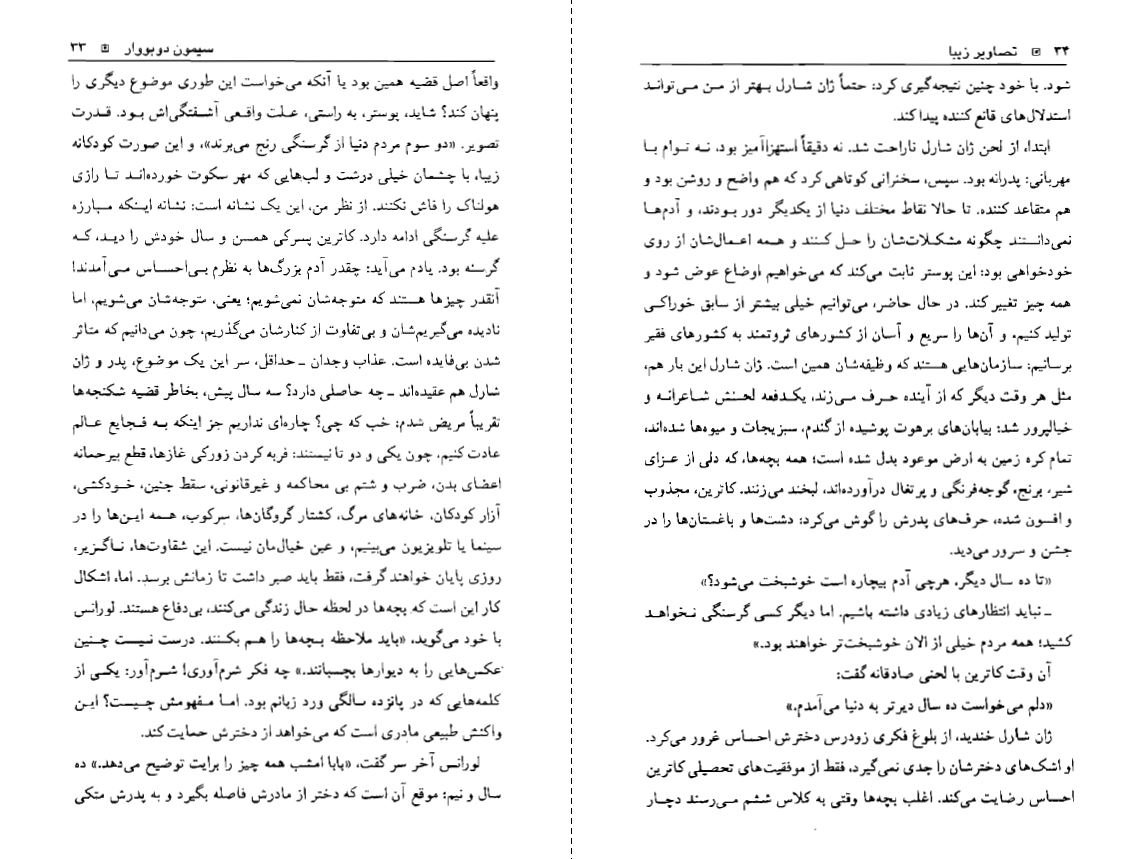 سیمون دوبووار ▣ ۳۳
واقعاً اصل قضیه همین بود یا آنکه می‌خواست این طوری موضوع دیگری را
پنهان کند؟ شاید، پوستر، به راستی، علت واقعی آشفتگی‌اش بود. قدرت
تصویر. «دو سوم مردم دنیا از گرسنگی رنج می‌برند»، و این صورت کودکانه
زیبا، با چشمان خیلی درشت و لب‌هایی که مهر سکوت خورده‌اند تا رازی
هولناک را فاش نکنند. از نظر من، این یک نشانه است: نشانه اینکه مبارزه
علیه گرسنگی ادامه دارد. کاترین پسرکی همسن و سال خودش را دید، که
گرسنه بود. یادم می‌آید: چقدر آدم بزرگ‌ها به نظرم بی‌احساس می‌آمدند!
آنقدر چیزها هستند که متوجه‌شان نمی‌شویم؛ یعنی، متوجه‌شان می‌شویم، اما
نادیده می‌گیریم‌شان و بی‌تفاوت از کنارشان می‌گذریم، چون می‌دانیم که متاثر
شدن بی‌فایده است. عذاب وجدان ـ حداقل، سر این یک موضوع، پدر و ژان
شارل هم عقیده‌اند ـ چه حاصلی دارد؟ سه سال پیش، بخاطر قضیه شکنجه‌ها
تقریباً مریض شدم: خب که چی؟ چاره‌ای نداریم جز اینکه به فجایع عالم
عادت کنیم، چون یکی و دو تا نیستند: فربه کردن زورکی غازها، قطع بیرحمانه
اعضای بدن، ضرب و شتم بی محاکمه و غیرقانونی، سقط جنین، خودکشی،
آزار کودکان، خانه‌های مرگ، کشتار گروگان‌ها، سرکوب، همه این‌ها را در
سینما یا تلویزیون می‌بینیم، و عین خیال‌مان نیست. این شقاوت‌ها، ناگزیر،
روزی پایان خواهند گرفت، فقط باید صبر داشت تا زمانش برسد. اما، اشکال
کار این است که بچه‌ها در لحظه حال زندگی می‌کنند، بی‌دفاع هستند. لورانس
با خود می‌گوید، «باید ملاحظه بچه‌ها را هم بکنند. درست نیست چنین
عکس‌هایی را به دیوارها بچسبانند.» چه فکر شرم‌آوری! شرم‌آور: یکی از
کلمه‌هایی که در پانزده سالگی ورد زبانم بود. اما مفهومش چیست؟ این
واکنش طبیعی مادری است که می‌خواهد از دخترش حمایت کند.
لورانس آخر سر گفت، «بابا امشب همه چیز را برایت توضیح می‌دهد.» ده
سال و نیم: موقع آن است که دختر از مادرش فاصله بگیرد و به پدرش متکی
۳۴ ▣ تصاویر زیبا
شود. با خود چنین نتیجه‌گیری کرد: حتماً ژان شارل بهتر از من می‌تواند
استدلال‌های قانع کننده پیدا کند.
ابتدا، از لحن ژان شارل ناراحت شد. نه دقیقاً استهزاآمیز بود، نه توام با
مهربانی: پدرانه بود. سپس، سخنرانی کوتاهی کرد که هم واضح و روشن بود و
هم متقاعد کننده. تا حالا نقاط مختلف دنیا از یکدیگر دور بودند، و آدم‌ها
نمی‌دانستند چگونه مشکلات‌شان را حل کنند و همه اعمال‌شان از روی
خودخواهی بود: این پوستر ثابت می‌کند که می‌خواهیم اوضاع عوض شود و
همه چیز تغییر کند. در حال حاضر، می‌توانیم خیلی بیشتر از سابق خوراکی
تولید کنیم، و آن‌ها را سریع و آسان از کشورهای ثروتمند به کشورهای فقیر
برسانیم: سازمان‌هایی هستند که وظیفه‌شان همین است. ژان شارل این بار هم،
مثل هر وقت دیگر که از آینده حرف می‌زند، یکدفعه لحنش شاعرانه و
خیالپرور شد: بیابان‌های برهوت پوشیده از گندم، سبزیجات و میوه‌ها شده‌اند،
تمام کره زمین به ارض موعود بدل شده است؛ همه بچه‌ها، که دلی از عزای
شیر، برنج، گوجه‌فرنگی و پرتغال درآورده‌اند، لبخند می‌زنند. کاترین، مجذوب
و افسون شده، حرف‌های پدرش را گوش می‌کرد: دشت‌ها و باغستان‌ها را در
جشن و سرور می‌دید.
«تا ده سال دیگر، هرچی آدم بیچاره است خوشبخت می‌شود؟»
ـ نباید انتظارهای زیادی داشته باشیم. اما دیگر کسی گرسنگی نخواهد
کشید؛ همه مردم خیلی از الان خوشبخت‌تر خواهند بود.»
آن وقت کاترین با لحنی صادقانه گفت:
«دلم می‌خواست ده سال دیرتر به دنیا می‌آمدم.»
ژان شارل خندید، از بلوغ فکری زودرس دخترش احساس غرور می‌کرد.
او اشک‌های دخترشان را جدی نمی‌گیرد، فقط از موفقیت‌های تحصیلی کاترین
احساس رضایت می‌کند. اغلب بچه‌ها وقتی به کلاس ششم می‌رسند دچار